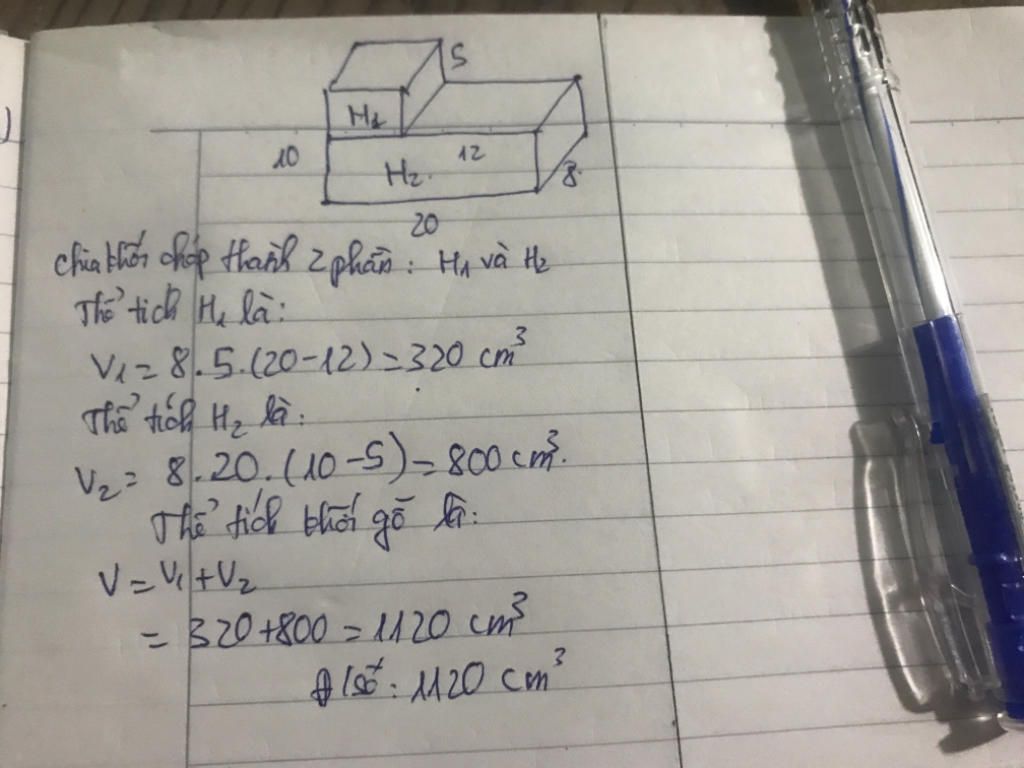 )
5
H1
10
12
H2.
8
20
Chia khối chóp thành 2 phần: H1 và H2
Thể tích H1 là:
V1 = 8.5.(20-12) = 320 cm³
Thể tích H2 là:
V2 = 8.20.(10-5) = 800 cm³.
Thể tích khối gỗ là:
V = V1 + V2
= 320+800 = 1120 cm³
Đ/số: 1120 cm³